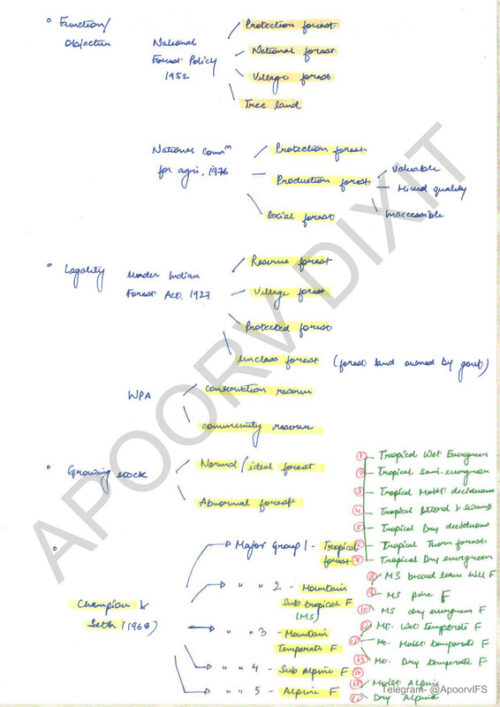 ° Function/
Objective
National
Forest Policy
1952
Protection forest
National forest
Village forest
Tree land
National Comm^n
for agri, 1976
Protection forest
Production forest
Valuable
Mixed quality
Inaccessible
Social forest
° Legality
Under Indian
Forest Act, 1927
Reserve forest
Village forest
Protected forest
Unclass forest (forest land owned by govt)
WPA
conservation reserve
community reserve
° Growing stock
Normal/ideal forest
Abnormal forest
° Champion &
Seth (1968)
Major Group 1 - Tropical
forest
① Tropical Wet Evergreen
② Tropical Semi-evergreen
③ Tropical Moist deciduous
④ Tropical littoral & swamp
⑤ Tropical Dry deciduous
⑥ Tropical Thorn forest
⑦ Tropical Dry evergreen
" " 2 - Mountain
Sub tropical F
(MS)
⑧ MS broad leav hill F
⑨ MS pine F
⑩ MS dry evergreen F
" " 3 - Mountain
Temperate F
⑪ Mt. Wet temperate F
⑫ Mo. Moist temperate F
⑬ Mo. Dry temperate F
" " 4 - Sub Alpine F
⑭
" " 5 - Alpine F
⑮ Moist Alpine
⑯ Dry Alpine
APOORV DIXIT
Telegram- @ApoorvIFS